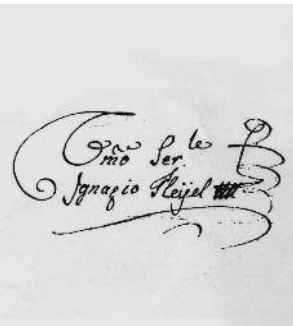 Omo Ser.te
Ignazio Pleijel